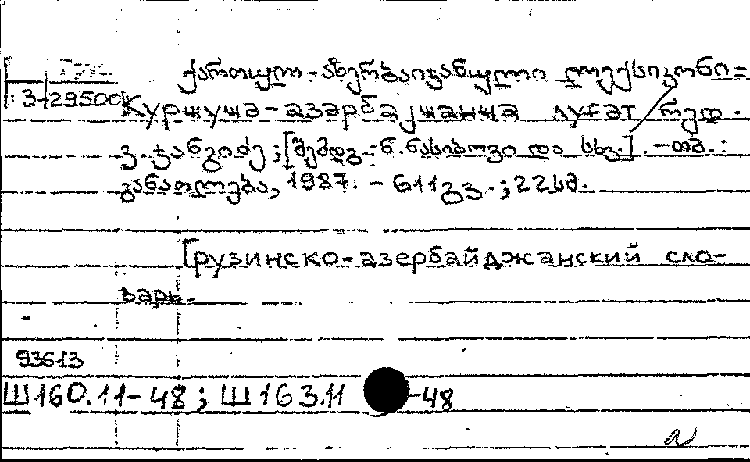 ქართულ-აზერბაიჯანული ლექსიკონი =
3-29500 Күрҹүҹә-азәрбајҹанҹа луғәт / რედ.
ვ. ჯანგიძე; [შემდგ.: ნ. ნასიბოვი და სხვ.]. - თბ.:
განათლება, 1987. - 611გვ.; 22სმ.
Грузинско-азербайджанский сло-
варь.
93613
Ш160.11-48; Ш163.11 -48